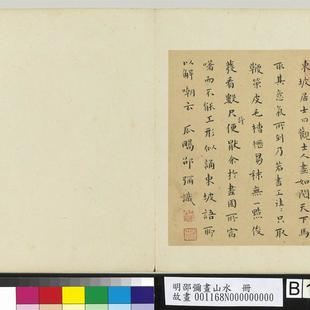 東坡居士曰觀士人畫如閱天下馬
取其意氣所到乃若畫工往往只取
鞭策皮毛槽櫪芻秣無一點俊
發看數尺許便倦余於畫固所

著而不依工形似誦東坡語所
以解嘲云 瓜疇邵彌識
明邵彌畫山水 冊
故畫001168N000000000
B